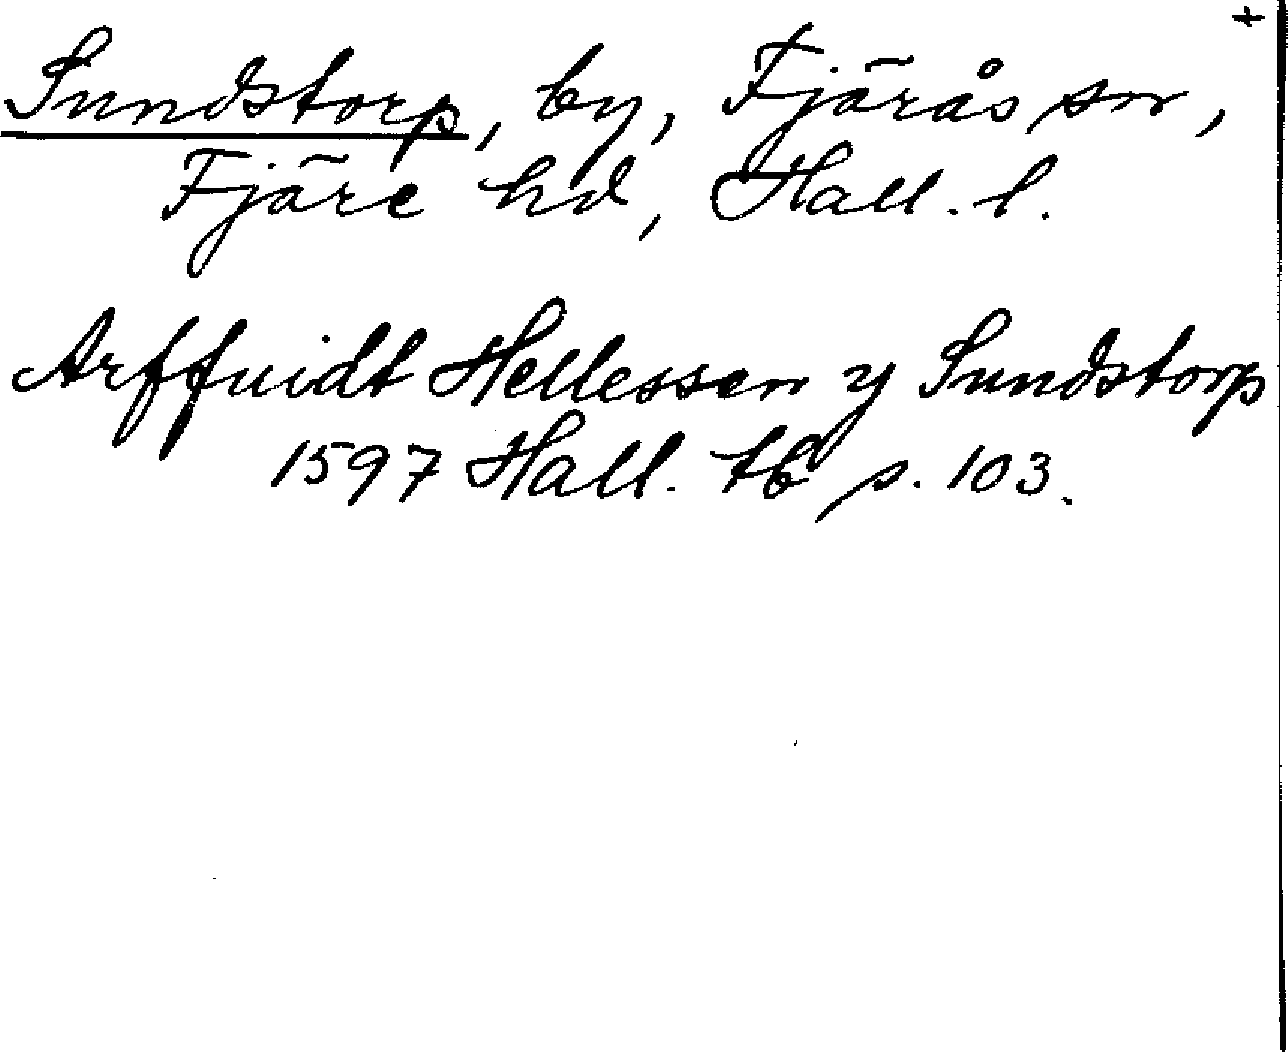 +
Sundstorp, by, Fjärås sn,
Fjäre hd, Hall. l.
Arffuidt Hellessen y Sundstorp
1597 Hall. tb p. 103.